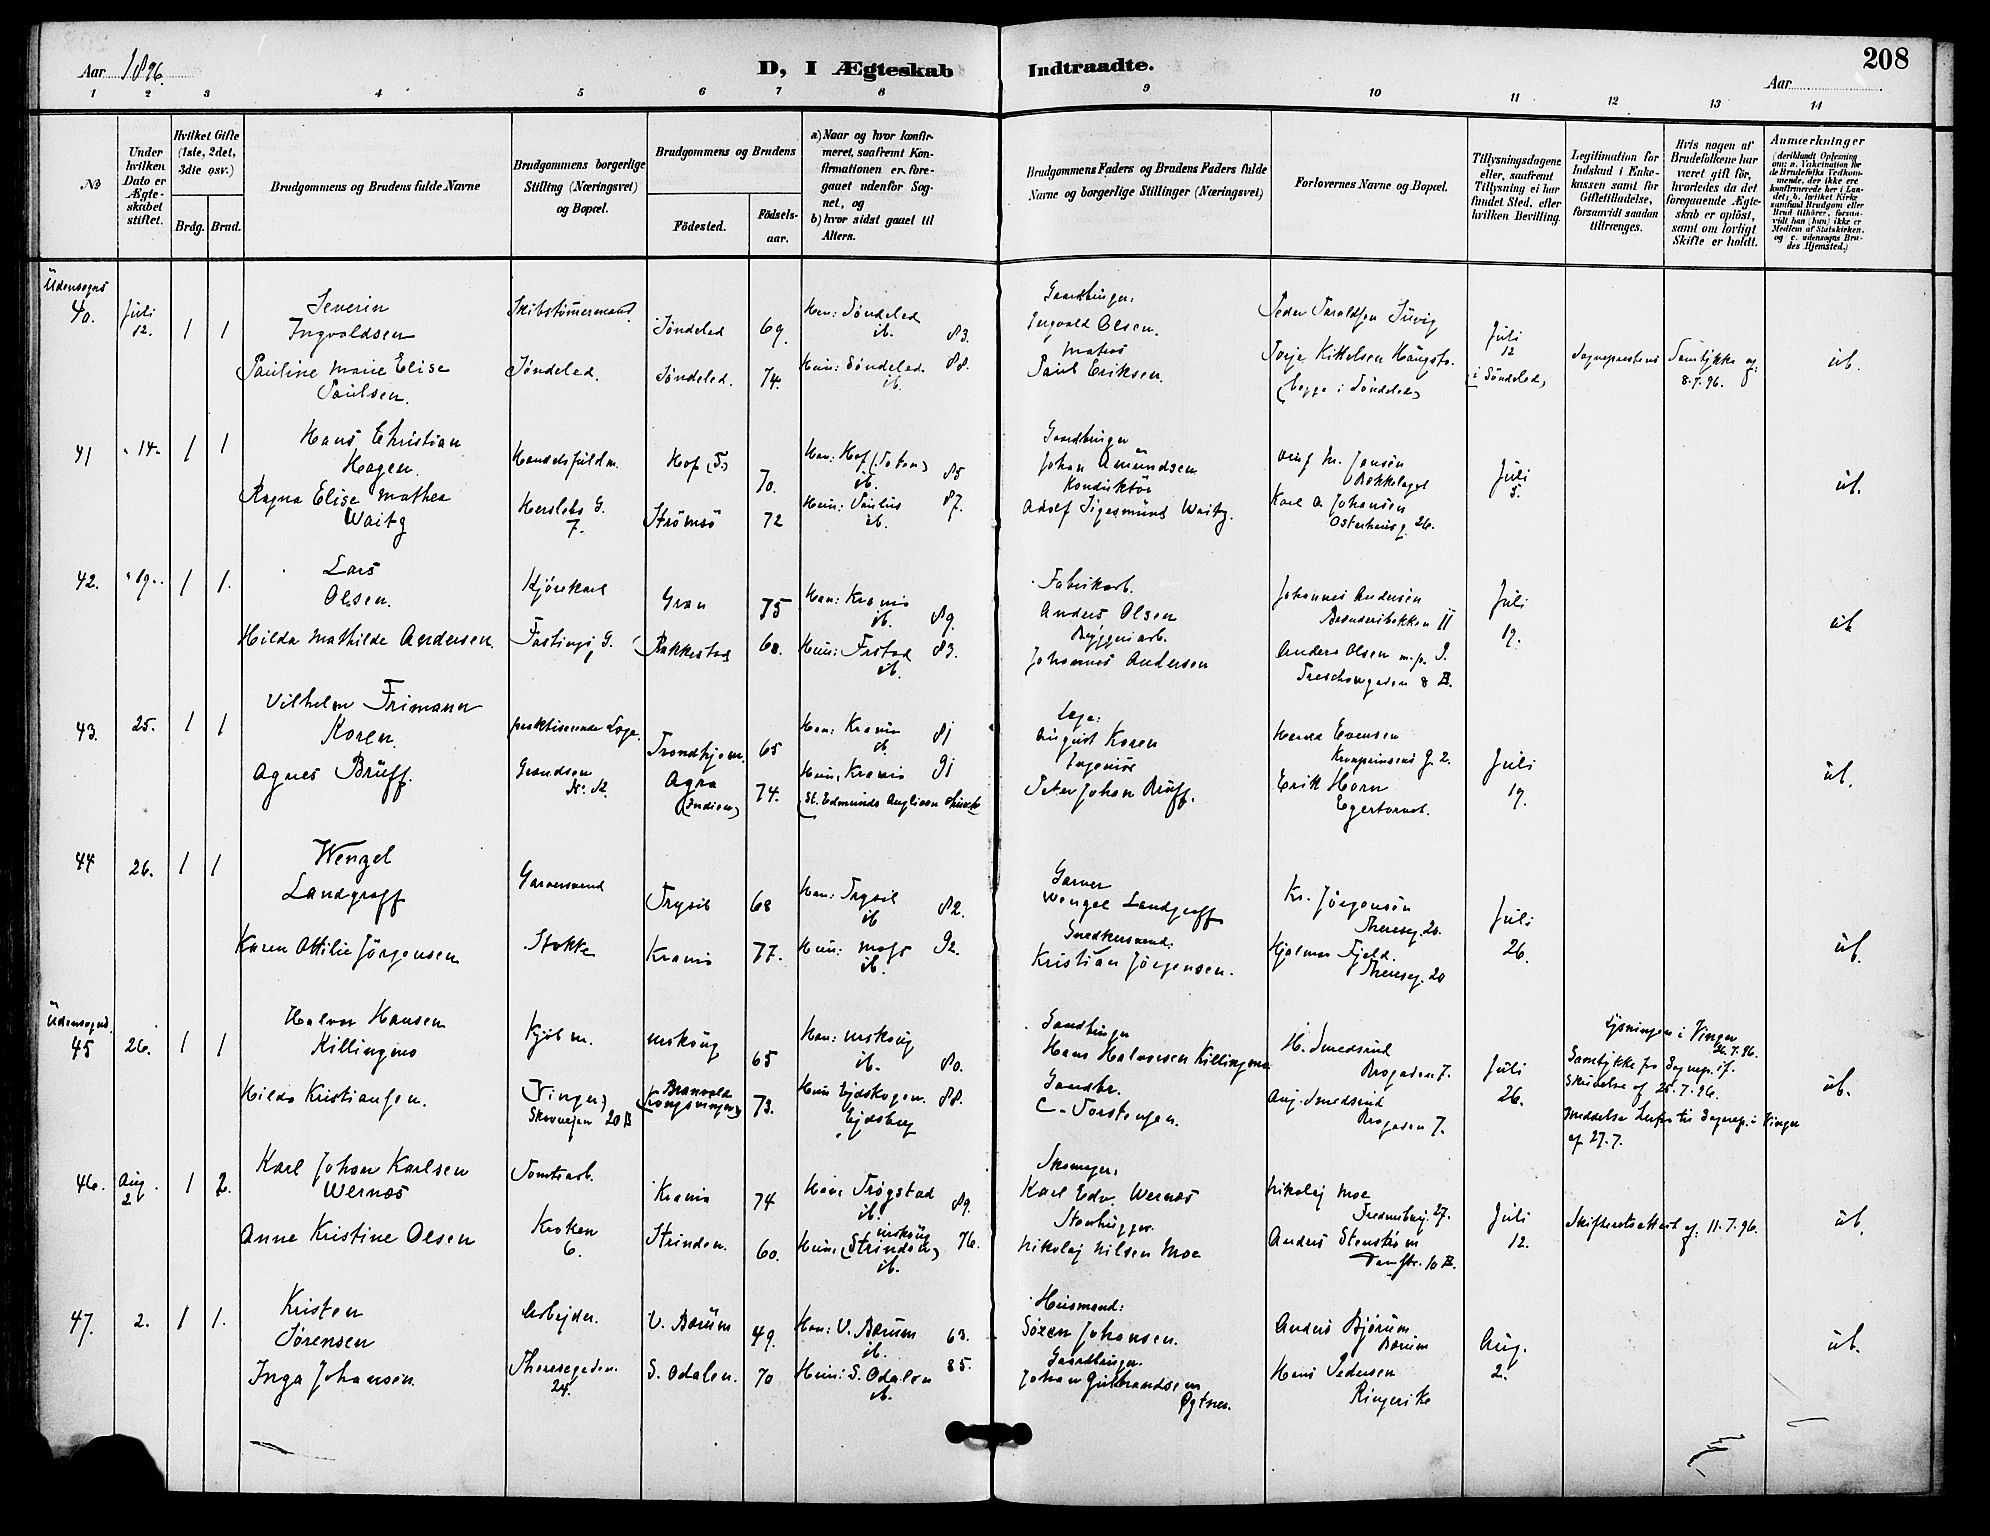 208
Aar 1896.
D, I Ægteskab
Indtraadte.
Aar
1 2 3 4 5 6 7 8 9 10 11 12 13 14
No
Under hvilken Dato er Ægteskabet stiftet.
Hvilket Gifte (1ste, 2det, 3die osv.)
Brdg. Brud.
Brudgommens og Brudens fulde Navne
Brudgommens borgerlige Stilling (Næringsvei) og Bopæl.
Brudgommens og Brudens
Födested.
Födselsaar.
a) Naar og hvor konfirmeret, saafremt Konfirmationen er foregaaet udenfor Sognet, og
b) hvor sidst gaaet til Alters.
Brudgommens Faders og Brudens Faders fulde Navne og borgerlige Stillinger (Næringsvei)
Forlovernes Navne og Bopæl.
Tillysningsdagene eller, saafremt Tillysning ei har fundet Sted, efter hvilken Bevilling.
Legitimation for Indskud i Enkekassen samt for Giftetilladelse, forsaavidt saadan tiltrænges.
Hvis nogen af Brudefolkene har været gift før, hvorledes da det foregaaende Ægteskab er oplöst, samt om lovligt Skifte er holdt.
Anmærkninger
(deriblandt Oplysning om: a. Vakcination for de Brudefolks Vedkommende, der ikke ere konfirmerede her i Landet; b. hvilket Kirkesamfund Brudgom eller Brud tilhører, forsaavidt han (hun) ikke er Medlem af Statskirken, og c. udensogns Brudes Hjemsted.)
Udensogns
40. Juli 12. 1 1
Severin Ingvoldsen
Skibstömermand
Söndeled 69.
Han: Söndeled ib. 83.
Gaardbruger:
Ingvald Olsen.
Peder Taraldsen
Juli 12
Pauline Marie Elise Paulsen.
Söndeled.
Söndeled. 74.
Hun: Söndeled ib. 88.
Matros
Paul Eriksen.
Terje Kittelsen
(begge i Söndeled)
(i Söndeled)
Sogneprestens Samtykke af 8.7.96.
ub.
41 " 14. 1 1
Hans Christian Hagen.
Handelsfuldm.
Hof (T) 70.
Han: Hof (Toten) ib. 85
Gaardbruger
Johan Amundsen
Jansen
Bækkelaget
Juli 5.
Ragna Elise Mathea Waitz
Herslebs G. 7.
Strömsö 72
Hun: Paulus ib. 87.
Konduktör
Adolf Sigesmund Waitz.
Karl A. Johansen
Osterhausg. 26.
ub.
42. " 19. 1 1.
Lars Olsen.
Kjörekarl
Gran 75
Han: Krania ib. 89.
Fabrikarb.
Anders Olsen
Johannes Andersen
11
Juli 19.
Hilda Mathilde Andersen.
Fastings G.
Rakkestad 68.
Hun: ib. 83.
Byggeriarb.
Johannes Andersen
Anders Olsen
Treschowgaden 8 B.
ub
43. 25. 1 1
Vilhelm Frimann Koren.
praktiserende Læge.
Trondhjem. 65
Han: Krania ib. 81
Læge:
August Koren
Evensen
Kronprinsens G. 2.
Juli 19.
Agnes Brüff.
Agra (Indien) 74.
Hun, Krania 91
(St. Edmunds Anglican Church
Ingeniör
Peter Johan Brüff.
Erik Horn
Egertorvet.
ub.
44 26. 1 1
Wenzel Landgraff
Garversvend
Trysil 68
Han: Trysil ib. 82.
Garver
Wenzel Landgraff
Kr. Jörgensen
Theresg. 20.
Juli 26.
Karen Ottilie Jörgensen
Stokke
Krania 77.
Hun: ib. 92.
Snedkersvend:
Kristian Jörgensen.
Hjalmar Fjeld.
Theresg. 20
ub.
Udensogns
45 26. 1 1
Halvor Hansen Killingmo
Kjöbm.
Urskoug 65
Han: Urskoug ib. 80.
Gaardbruger
Hans Halvorsen Killingmo
H. Smedsrud
Brogaden 7.
Juli 26.
Lysningen i Vinger 26.7.96.
Samtykke fra Sognep. if. Skrivelse af 25.7.96.
Hilda Kristiansen.
(Vinger)
20 B
Branvold (Kongsvinger) 73.
Hun Eidskogen. 88.
Eidsberg
Gaardbr.
C. Torstensen.
Aug. Smedsrud
Brogaden 7.
Meddelse herfra til Sognep. i Vinger af 27.7.
ub.
46. Aug. 2 1 2.
Karl Johan Karlsen Wernæs
Tomtearb.
Krania 74
Han: Trögstad ib. 89.
Skomager:
Karl Edv. Wernæs
Nikolaj Moe
27.
Juli 12.
Skifteretsattest af 11.7.96.
ub.
Anne Kristine Olsen
Kroken 6.
Strinden. 60.
Hun: Urskoug (Strinden) ib. 76.
Stenhugger.
Nikolaj Nilsen Moe
Anders Stenström
10 B.
47. 2. 1 1.
Kristen Sörensen
Arbejder.
V. Bærum 49.
Han: V. Bærum ib. 63.
Husmand:
Sören Johansen.
Anders Bjørum
Bærum
Aug. 2.
Inga Johansen.
Theresegaden. 24.
S. Odalen. 70
Hun: S. Odalen ib. 85.
Gaardbruger.
Johan Gulbrandsen
Hans Pedersen
Ringerike
ub.